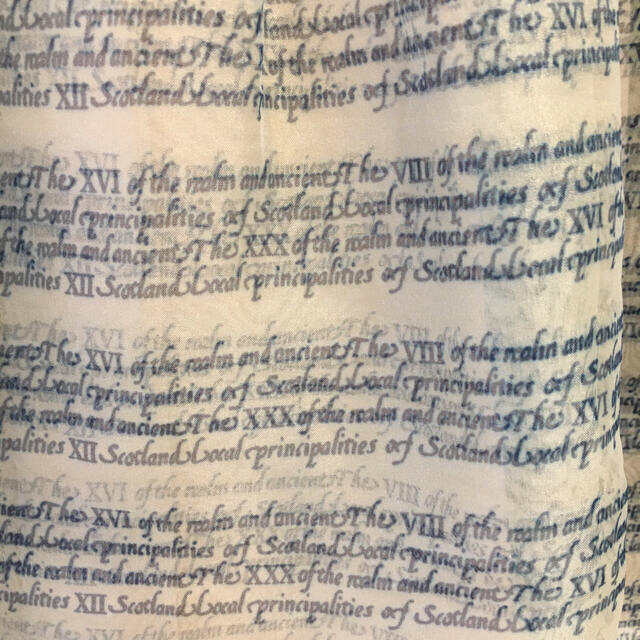 Local principalities of Scotland Local principalities
the realm and ancient The of the realm and ancient The XVI of the
palities XII Scotland Local principalities of Scotland Local principalities
The XVI of the realm and ancient The VIII of the realm and ancient
and Local principalities of Scotland Local principalities of Scotland
of the realm and ancient The XXX of the realm and ancient The XVI of
palities XII Scotland Local principalities of Scotland Local principalities
The XVI of the realm and ancient The VIII of the
The XVI of the realm and ancient The VIII of the realm and ancient
and Local principalities of Scotland Local principalities of Scotland
of the realm and ancient The XXX of the realm and ancient The XVI of
palities XII Scotland Local principalities of Scotland Local principalities
The XVI of the realm and ancient The VIII of the
The XVI of the realm and ancient The VIII of the realm and ancient
and Local principalities of Scotland Local principalities of Scotland
of the realm and ancient The XXX of the realm and ancient The XVI of
cipalities XII Scotland Local principalities of Scotland Local principalities
The XVI of the realm and ancient The VIII of the